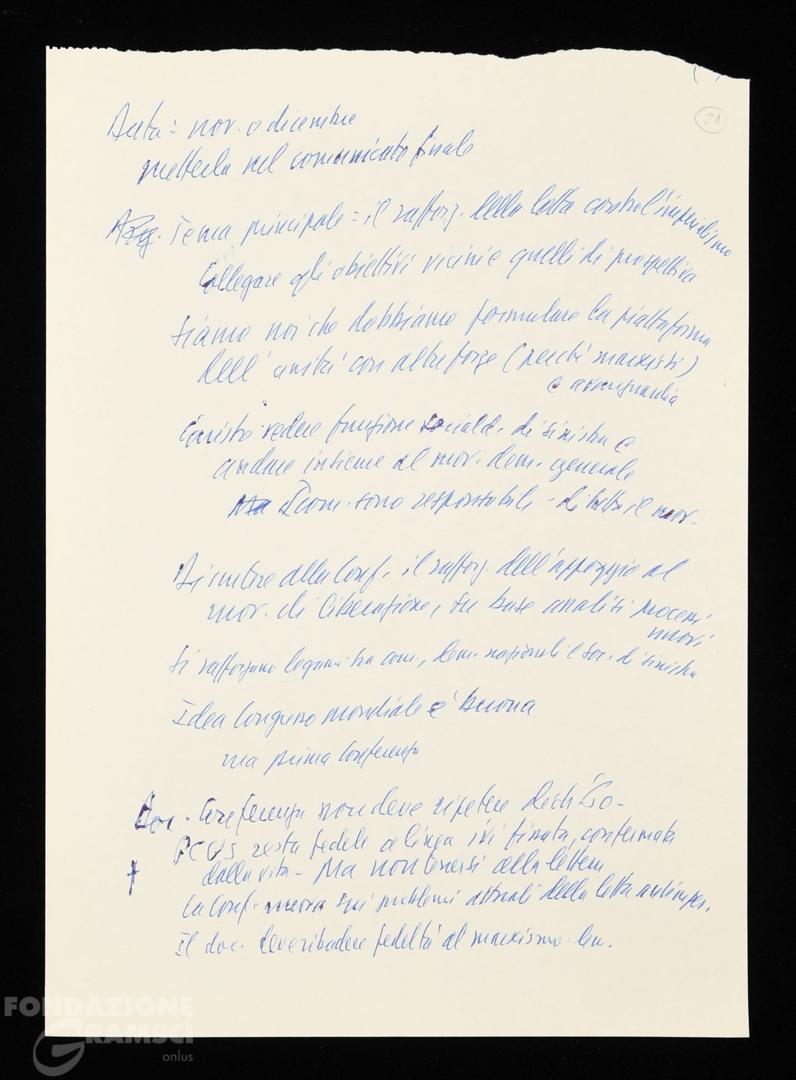 21
Data = nov. o dicembre
metterla nel comunicato finale
Arg. Tema principale = il rafforz. della lotta contro l'imperialismo
Collegare gli obiettivi vicini e quelli di prospettiva
Siamo noi che dobbiamo formulare la piattaforma
dell'unità con altre forze (perché marxisti)
e avanguardia
redere funzione sociald. di sinistra e
andare insieme al mov. dem. generale
Ma I com. sono responsabili di tutto il mov.
Discutere alla Conf. il rafforz. dell'appoggio al
mov. di liberazione, su base analisi processi
nuovi
Si rafforzano legami tra com., dem. nazionali e soc. di sinistra
Idea Congresso mondiale è buona
ma prima Conferenza
Doc. Conferenza non deve ripetere dich. 60 -
PCUS resta fedele a linea ivi fissata, confermata
dalla vita - Ma non tenersi alla lettera
La Conf. sui problemi attuali della lotta antimper.
Il doc. deve ribadire fedeltà al marxismo-len.
FONDAZIONE
GRAMSCI
onlus